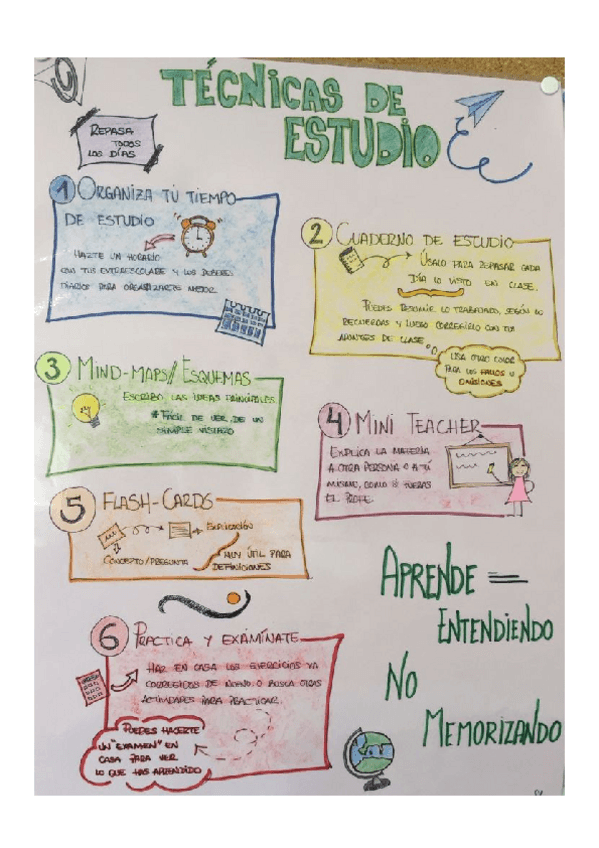 TÉCNICAS DE
ESTUDIO
REPASA
TODOS
LOS DÍAS
1 ORGANIZA TÚ TIEMPO
DE ESTUDIO
HAZTE UN HORARIO
CON TUS EXTRAESCOLARES Y LOS DEBERES
DIARIOS PARA ORGANIZARTE MEJOR.
2 CUADERNO DE ESTUDIO
ÚSALO PARA REPASAR CADA
DÍA LO VISTO EN CLASE.
PUEDES RESUMIR LO TRABAJADO, SEGÚN LO
RECUERDAS Y LUEGO CORREGIRLO CON TUS
APUNTES DE CLASE.
USA OTRO COLOR
PARA LOS FALLOS U
OMISIONES
3 MIND-MAPS// ESQUEMAS
ESCRIBO LAS IDEAS PRINCIPALES
* FÁCIL DE VER DE UN
SIMPLE VISTAZO
4 MINI TEACHER
EXPLICA LA MATERIA
A OTRA PERSONA O A TÚ
MISMO, COMO SI FUERAS
EL PROFE.
5 FLASH-CARDS
EXPLICACIÓN
CONCEPTO/PREGUNTA
MUY ÚTIL PARA
DEFINICIONES
APRENDE =
ENTENDIENDO
NO
MEMORIZANDO
6 PRACTICA Y EXAMÍNATE
HAZ EN CASA LOS EJERCICIOS YA
CORREGIDOS DE NUEVO O BUSCA OTRAS
ACTIVIDADES PARA PRACTICAR.
PUEDES HACERTE
UN "EXAMEN" EN
CASA PARA VER
LO QUE HAS APRENDIDO